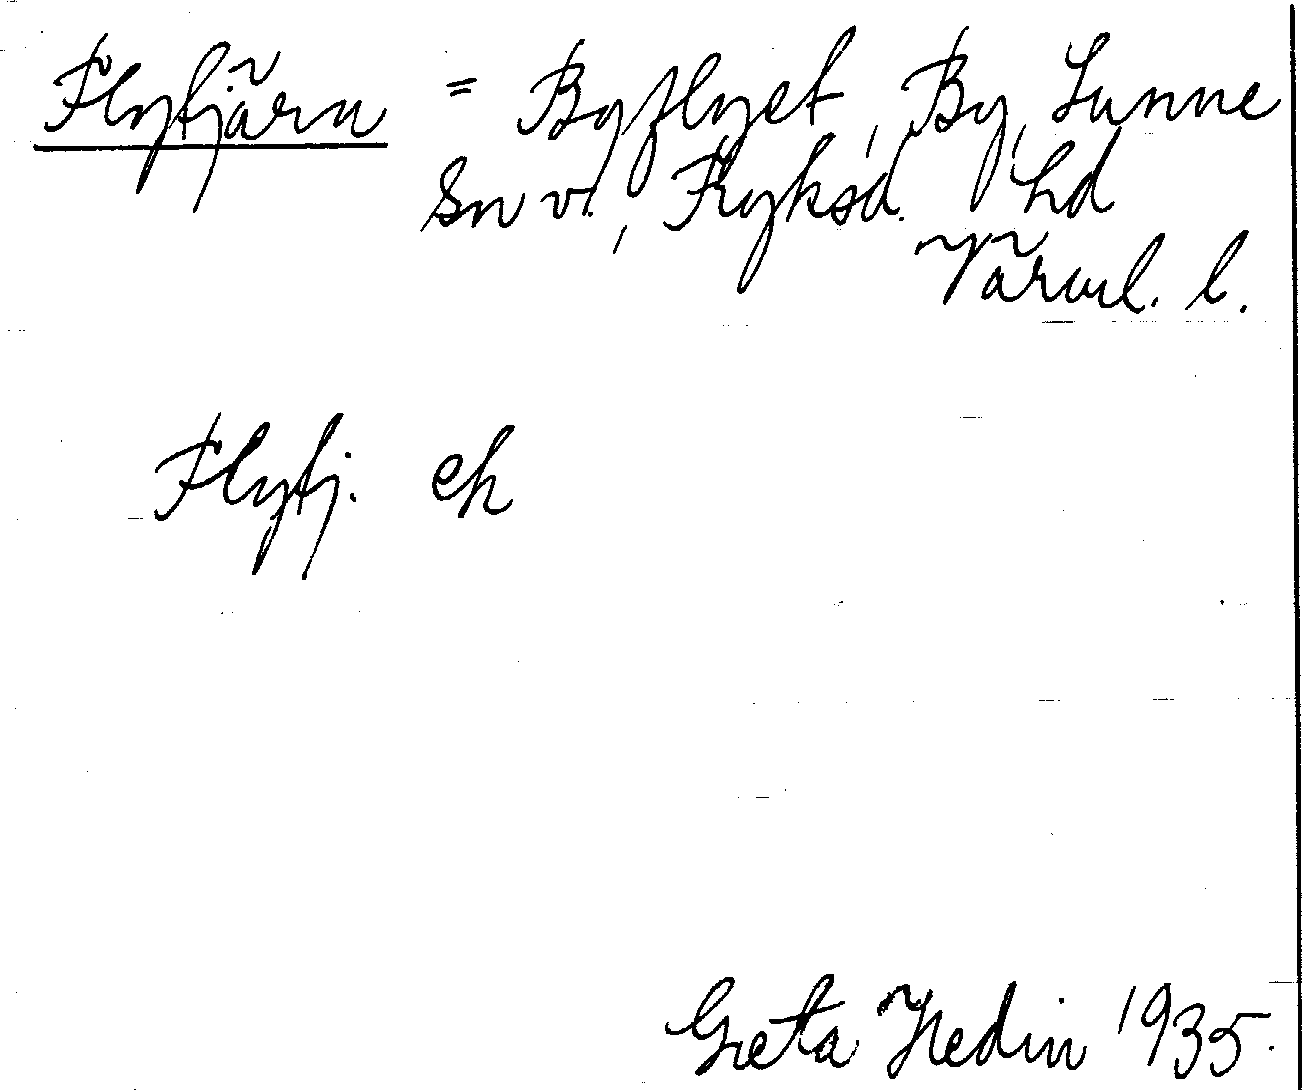 Flytjärn = Byflyet, By, Sunne
Sn v., Fryksd. hd
Värml. l.
Flytj. ek
Greta Hedin 1935.